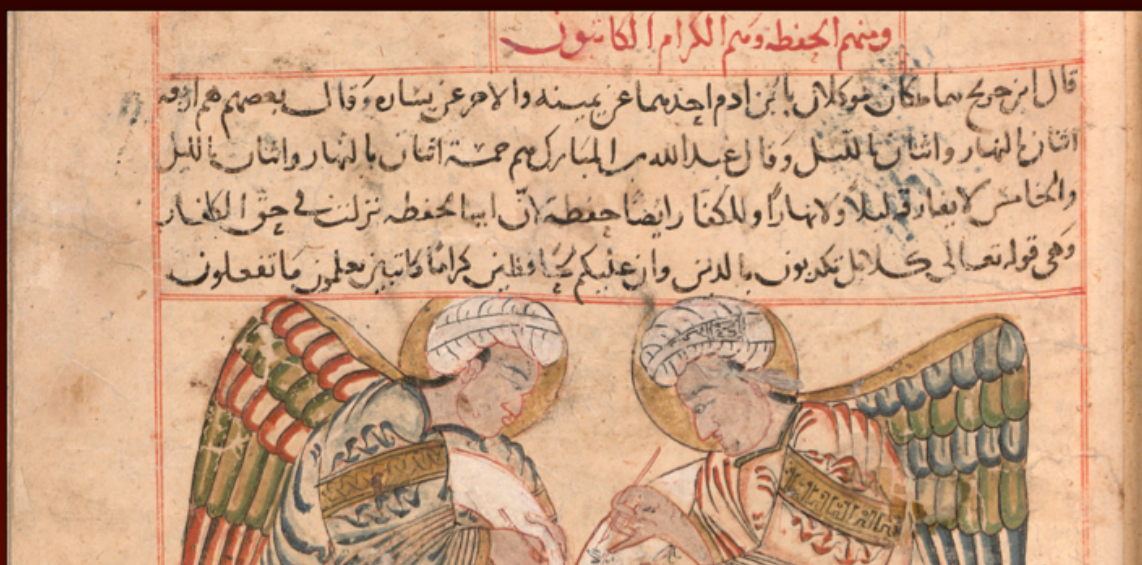 ومنهم الحفظة وهم الكرام الكاتبون
قال ابن جريج هما ملكان موكلان بابن ادم احدهما عن يمينه والاخر عن يساره وقال بعضهم هم اربعة
اثنان بالنهار واثنان بالليل وقال عبد الله بن المبارك هم خمسة اثنان بالنهار واثنان بالليل
والخامس لا يفارقه ليلا ولا نهارا وللكفار ايضا حفظة لان اية الحفظة نزلت في حق الكفار
وهي قوله تعالى كلا بل تكذبون بالدين وان عليكم لحافظين كراما كاتبين يعلمون ما تفعلون